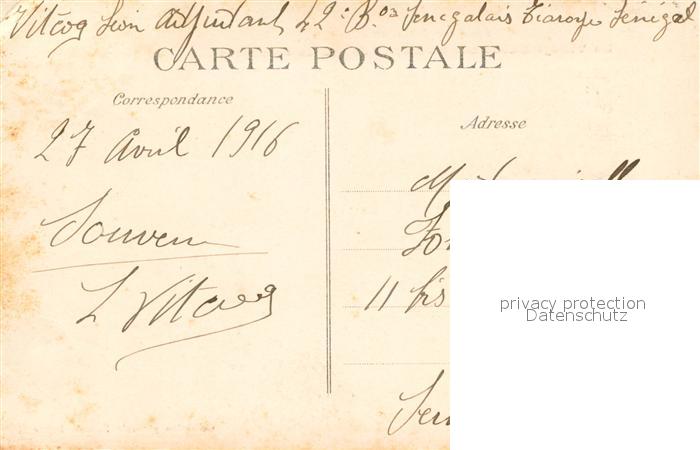 Vitcoq Léon Adjudant 42e Bon Sénégalais Tiaroye Sénégal
CARTE POSTALE
Correspondance
27 Avril 1916
Souvenir
L Vitcoq
Adresse
11 bis
privacy protection
Datenschutz